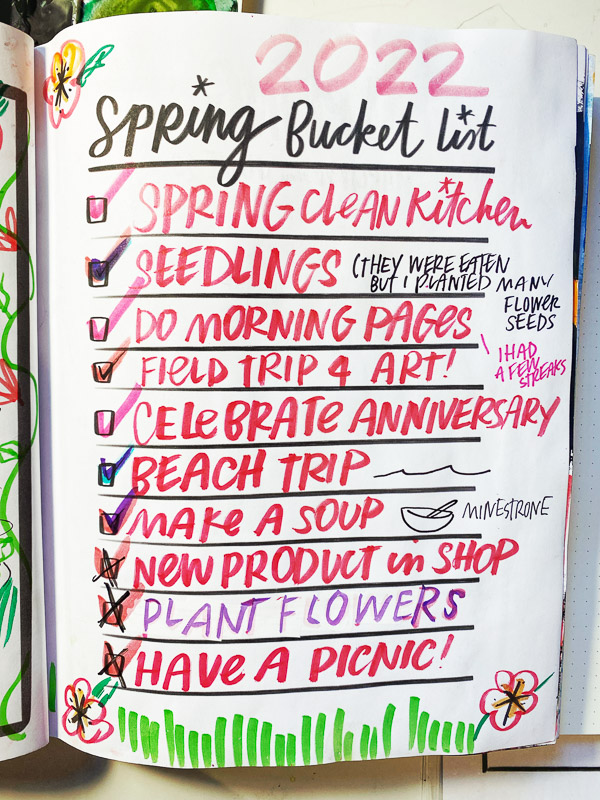 2022
Spring Bucket List
SPRING CLEAN Kitchen
SEEDLINGS (THEY WERE EATEN
BUT I PLANTED MANY
FLOWER
SEEDS
DO MORNING PAGES
I HAD
A FEW
STREAKS
FIELD TRIP 4 ART!
CELEBRATE ANNIVERSARY
BEACH TRIP
MAKE A SOUP MINESTRONE
NEW PRODUCT in SHOP
PLANT FLOWERS
HAVE A PICNIC!